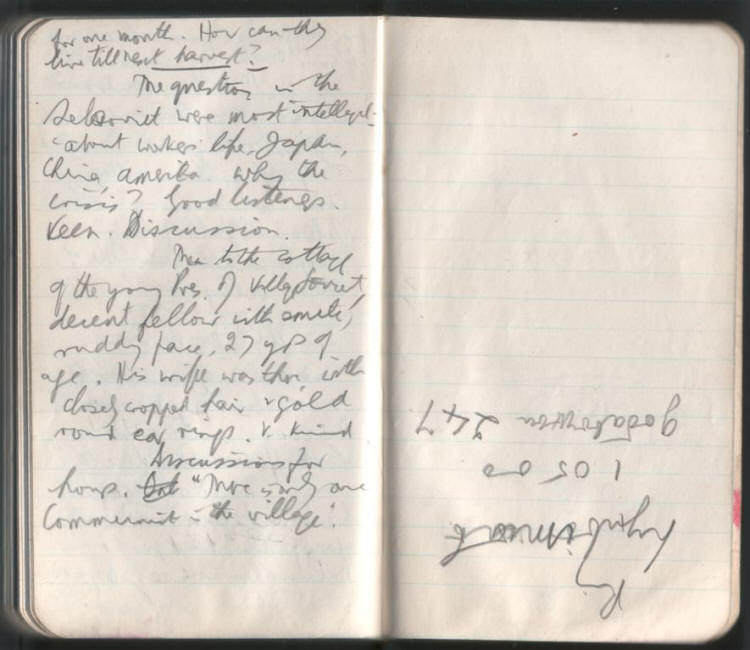 for one month. How can they
live till next harvest?
The questions in the
Selsoviet were most intelligent
about workers life, Japan,
China, America. why the
crisis? Good listeners.
Keen. Discussion.
Then to the cottage
of the young Pres. of Village Soviet,
decent fellow with smile,
ruddy face, 27 yrs of
age. His wife was there with
closely cropped hair & gold
round ear rings. V. kind
Discussions for
hours. "There is only one
Communist in the village'.
1 05 00
247